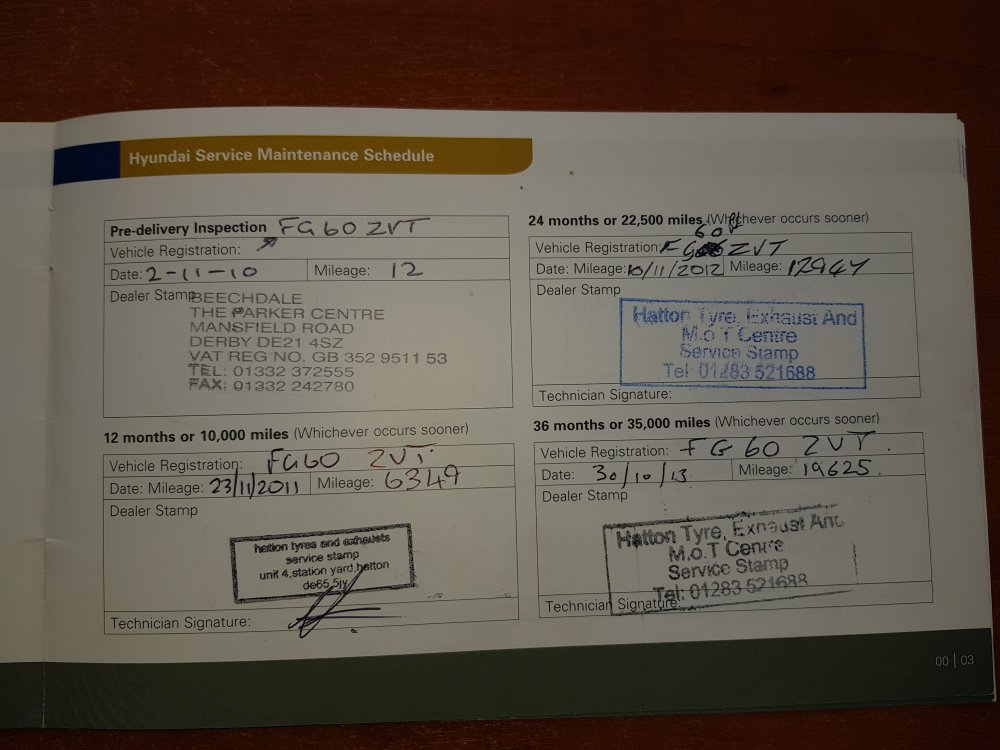 Hyundai Service Maintenance Schedule
Pre-delivery Inspection FG60 ZVT
Vehicle Registration:
Date: 2-11-10 Mileage: 12
Dealer Stamp
BEECHDALE
THE PARKER CENTRE
MANSFIELD ROAD
DERBY DE21 4SZ
VAT REG NO. GB 352 9511 53
TEL: 01332 372555
FAX: 01332 242780
12 months or 10,000 miles (Whichever occurs sooner)
Vehicle Registration: FG60 ZVT
Date: Mileage: 23/11/2011 Mileage: 6349
Dealer Stamp
hatton tyres and exhausts
service stamp
unit 4,station yard,hatton
de65 5jy
Technician Signature:
24 months or 22,500 miles (Whichever occurs sooner)
60
Vehicle Registration: FG ZVT
Date: Mileage: 10/11/2012 Mileage:
Dealer Stamp
Hatton Tyre, Exhaust And
M.o T Centre
Service Stamp
Tel: 01283 521688
Technician Signature:
36 months or 35,000 miles (Whichever occurs sooner)
Vehicle Registration: FG 60 ZVT.
Date: 30/10/13. Mileage: 19625.
Dealer Stamp
Hatton Tyre, Exhaust And
M.o.T Centre
Service Stamp
Tel: 01283 521688
Technician Signature:
00 | 03